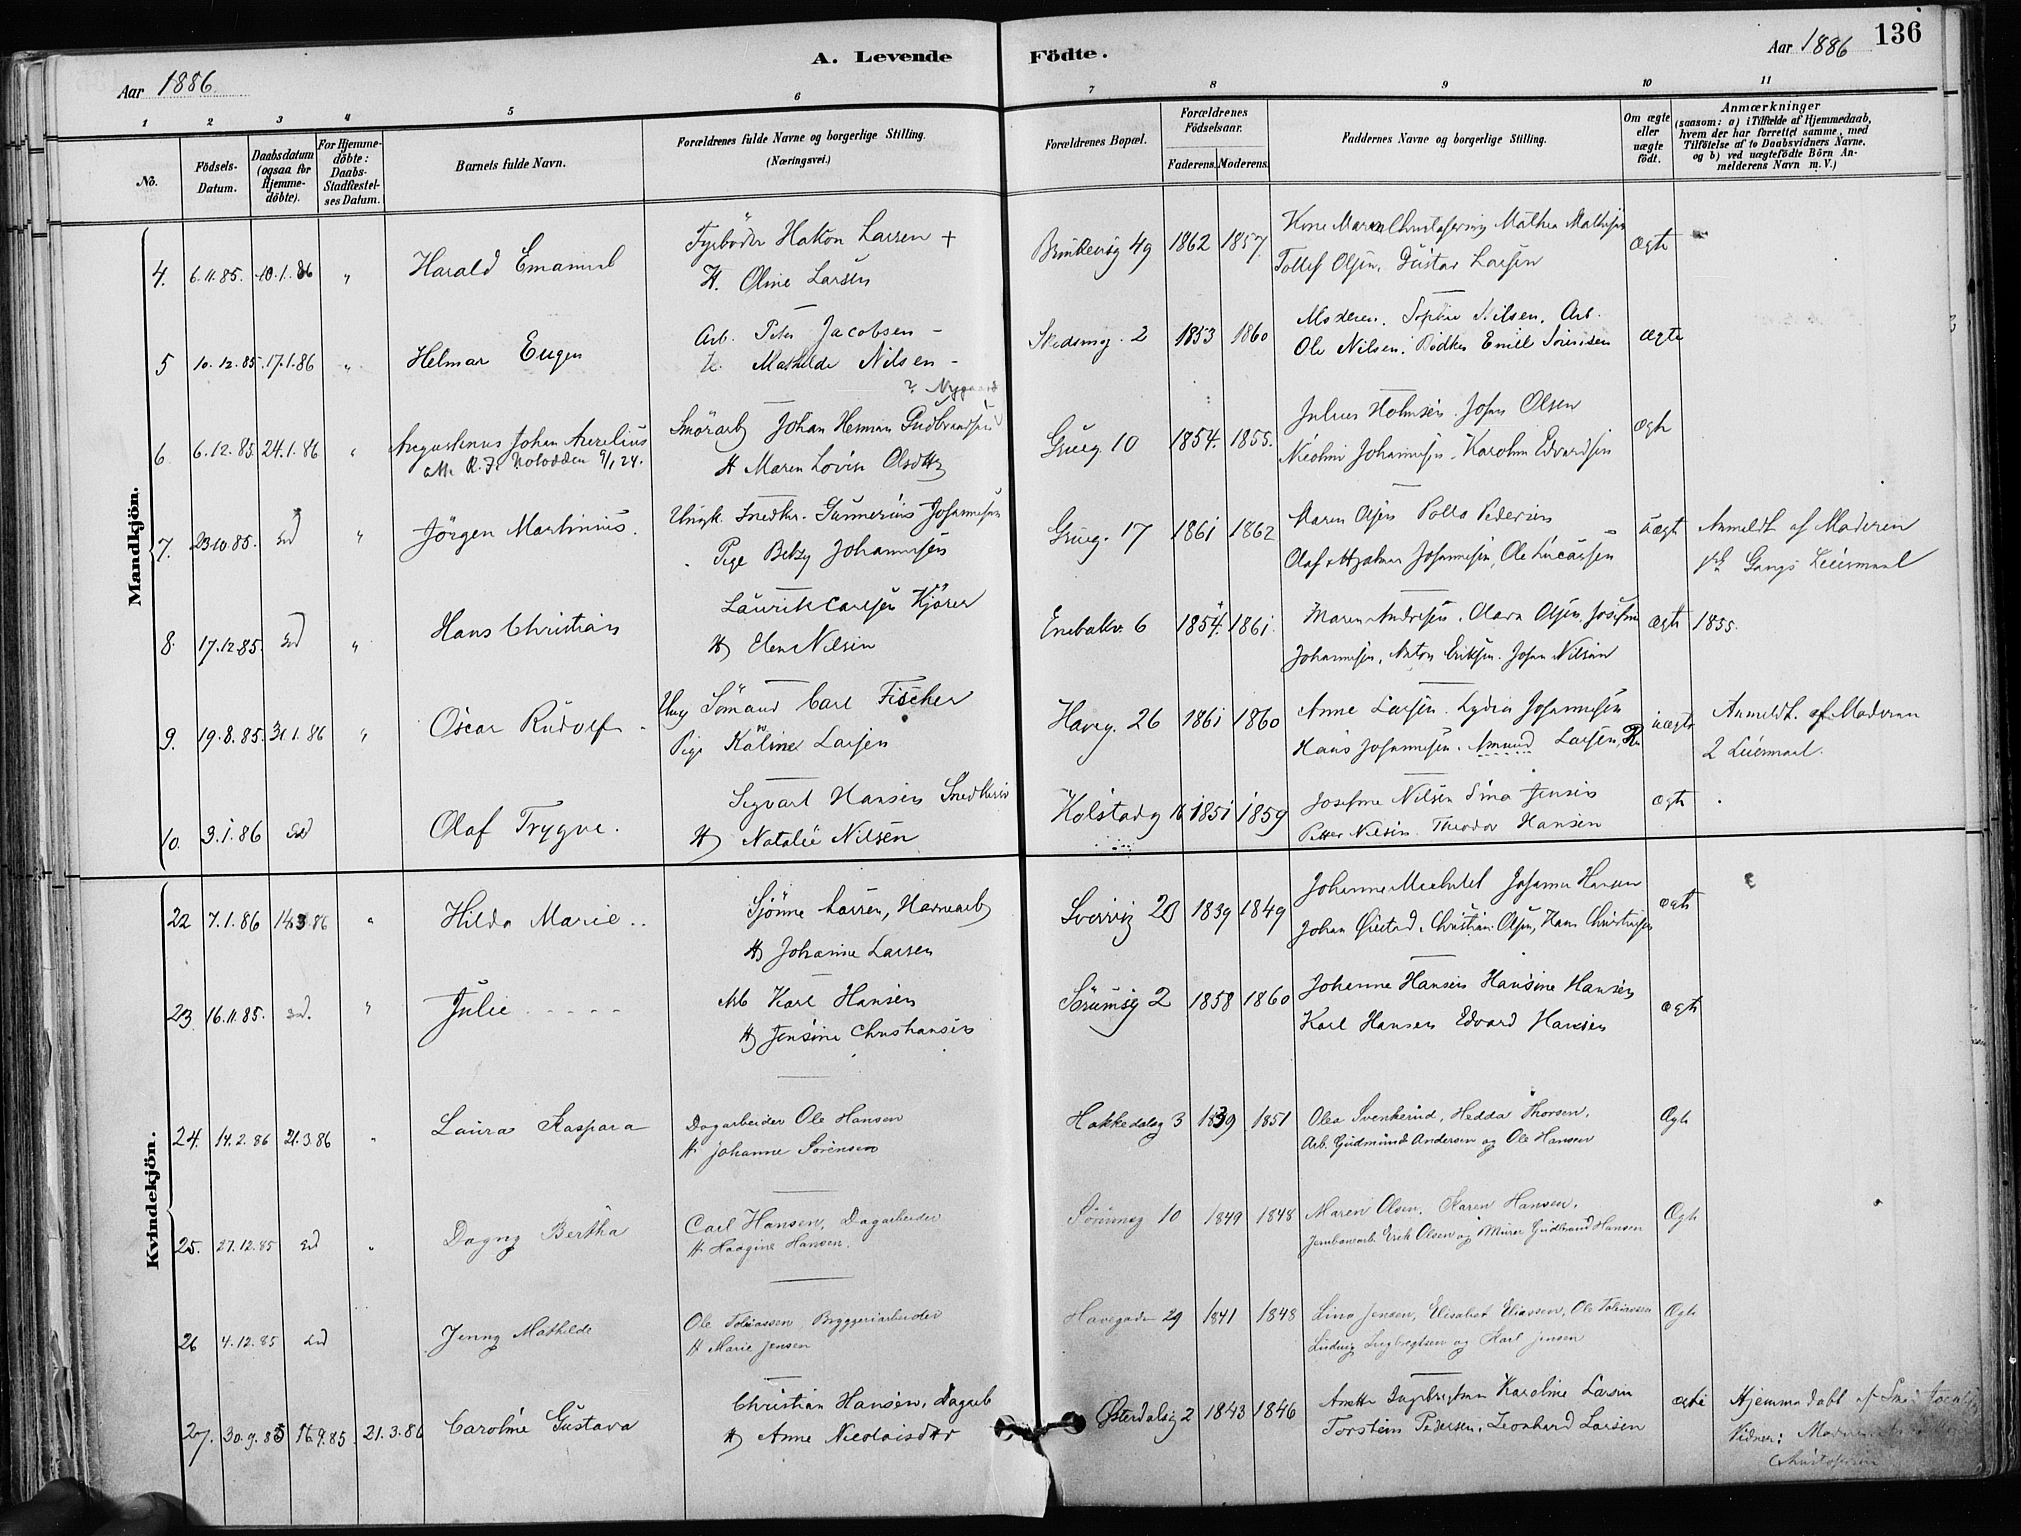 Aar 1886. A. Levende Födte. Aar 1886 136
1 2 3 4 5 6 7 8 9 10 11
No.
Födsels-Datum.
Daabsdatum (ogsaa for Hjemme-döbte).
For Hjemme-döbte: Daabs-Stadfæstel-ses Datum.
Barnets fulde Navn.
Forældrenes fulde Navne og borgerlige Stilling.
(Næringsvei.)
Forældrenes Bopæl.
Forældrenes Födselsaar.
Faderens. Moderens.
Faddernes Navne og borgerlige Stilling.
Om ægte eller uægte födt.
Anmærkninger
(saasom: a) i Tilfælde af Hjemmedaab,
hvem der har forrettet samme, med
Tilföielse af to Daabsvidners Navne,
og b) ved uægtefödte Börn An-
melderens Navn m. V.)
Mandkjön.
4. 6.11.85. 10.1.86 " Harald Emanuel
Fyrböder Hakon Larsen +
H. Oline Larsen
49 1862 1857.
Tollef Olsen, Gustav Larsen
ægte
5 10.12.85. 17.1.86 " Helmar Eugen
Arb. Peter Jacobsen -
H. Mathilde Nilsen -
Skedsmog. 2 1853 1860
Moderen. Nilsen. Arb.
Ole Nilsen. Bödker Emil Sörensen
ægte
? Nygaard
6. 6.12.85. 24.1.86 " Augustinus Johan Aurelius
Johan Herman Gudbrandsen
H Maren Lovise Olsdtr
Grueg. 10 1854. 1855.
Julius Holmsen. Johan Olsen
Johannesen. Karoline Edvardsen
ægte
7. 23.10.85. Ed " Jörgen Martinius.
Ungk. Snedker. Gunnerius Johannesen
Pige Betzy Johannesen
Grueg. 17 1861 1862
Maren Olsen Pedersen
Olaf Hjalmar Johannesen, Ole Lucassen
uægte
Anmeldt af Moderen
Gangs Leiermaal
8. 17.12.85. Ed " Hans Christian
Laurits Carlsen Kjörer
H Elen Nilsen
Enebakv. 6 1854. 1861.
Maren Andresen. Olava Olsen, Josefine
Johannesen, Anton Eriksen. Johan Nilsen
ægte 1855.
9. 19.8.85. 31.1.86 " Oscar Rudolf -
Ung Sömand Carl Fischer
Pige Kaline Larsen
Haveg. 26 1861 1860
Anne Larsen. Lydia Johannesen
Hans Johannesen. Amund Larsen,
uægte
Anmeldt. af Moderen
2 Leiermaal.
10. 3.1.86 Ed Olaf Trygve.
Sigvart Hansen Snedker
H Natalie Nilsen
Kolstadg 16 1851 1859
Josefine Nilsen Sina Jensen
Petter Nilsen. Theodor Hansen
ægte
Kvindekjön.
22 7.1.86 14.3.86 " Hilda Marie..
Sjönne Larsen, Havnearb
H Johanne Larsen
20 1839 1849
Johanne Johanna Hansen
Johan Christian Olsen, Hans Christensen
ægte
23 16.11.85. Ed. " Julie . . . . .
Arb Karl Hansen
H Jensine Christiansen
Sörumsg 2 1858 1860
Johanne Hansen Hansine Hansen
Karl Hansen Edvard Hansen
ægte
24. 14.2.86 21.3.86 " Laura Kaspara
Dagarbeider Ole Hansen
H Johanne Sörensen
Hakkedalsg 3 1839 1851
Olea Svenkerud, Hedda Thorsen,
Arb. Gudmund Andersen og Ole Hansen
Ægte
25. 27.12.85 Ed " Dagny Bertha
Carl Hansen, Dagarbeider
H Haagine Hansen.
Sörumsg 10 1849 1848
Maren Olsen. Karen Hansen,
Jernbanearb. Erik Olsen og Murer Gudbrand Hansen
Ægte
26 4.12.85 Ed Jenny Mathilde
Ole Tobiassen, Bryggeriarbeider
H Marie Jensen
Havegaden 29 1841 1848
Lina Jensen, Elisabet Eliassen, Ole Tobiassen
Ludvig Ingbregtsen og Karl Jensen
Ægte
27. 30.9.85 21.3.86 Caroline Gustava
Christian Hansen, Dagarb
H Anne Nicolaisdtr
Østerdalsg 2 1843 1846
Anette Ingebrigtsen Karoline Larsen
Torstein Pedersen, Leonhard Larsen
ægte
Hjemmedöbt af
Vidner: